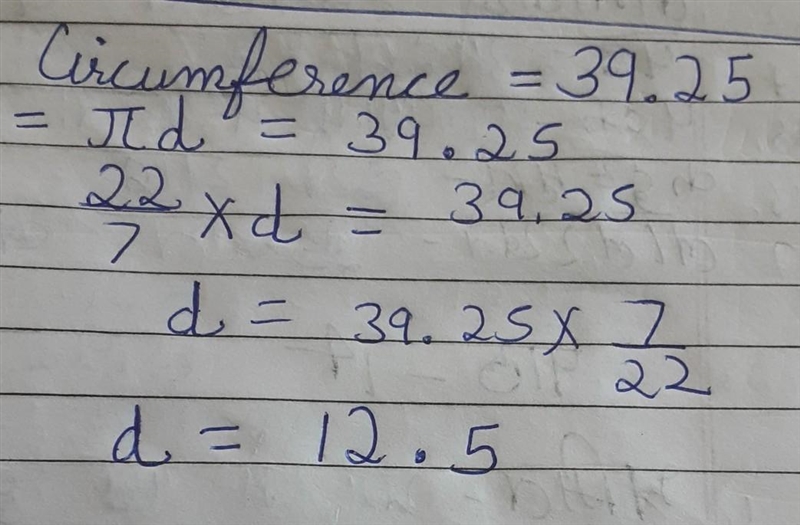 Circumference = 39.25
= πd = 39.25
22/7 × d = 39.25
d = 39.25 × 7/22
d = 12.5